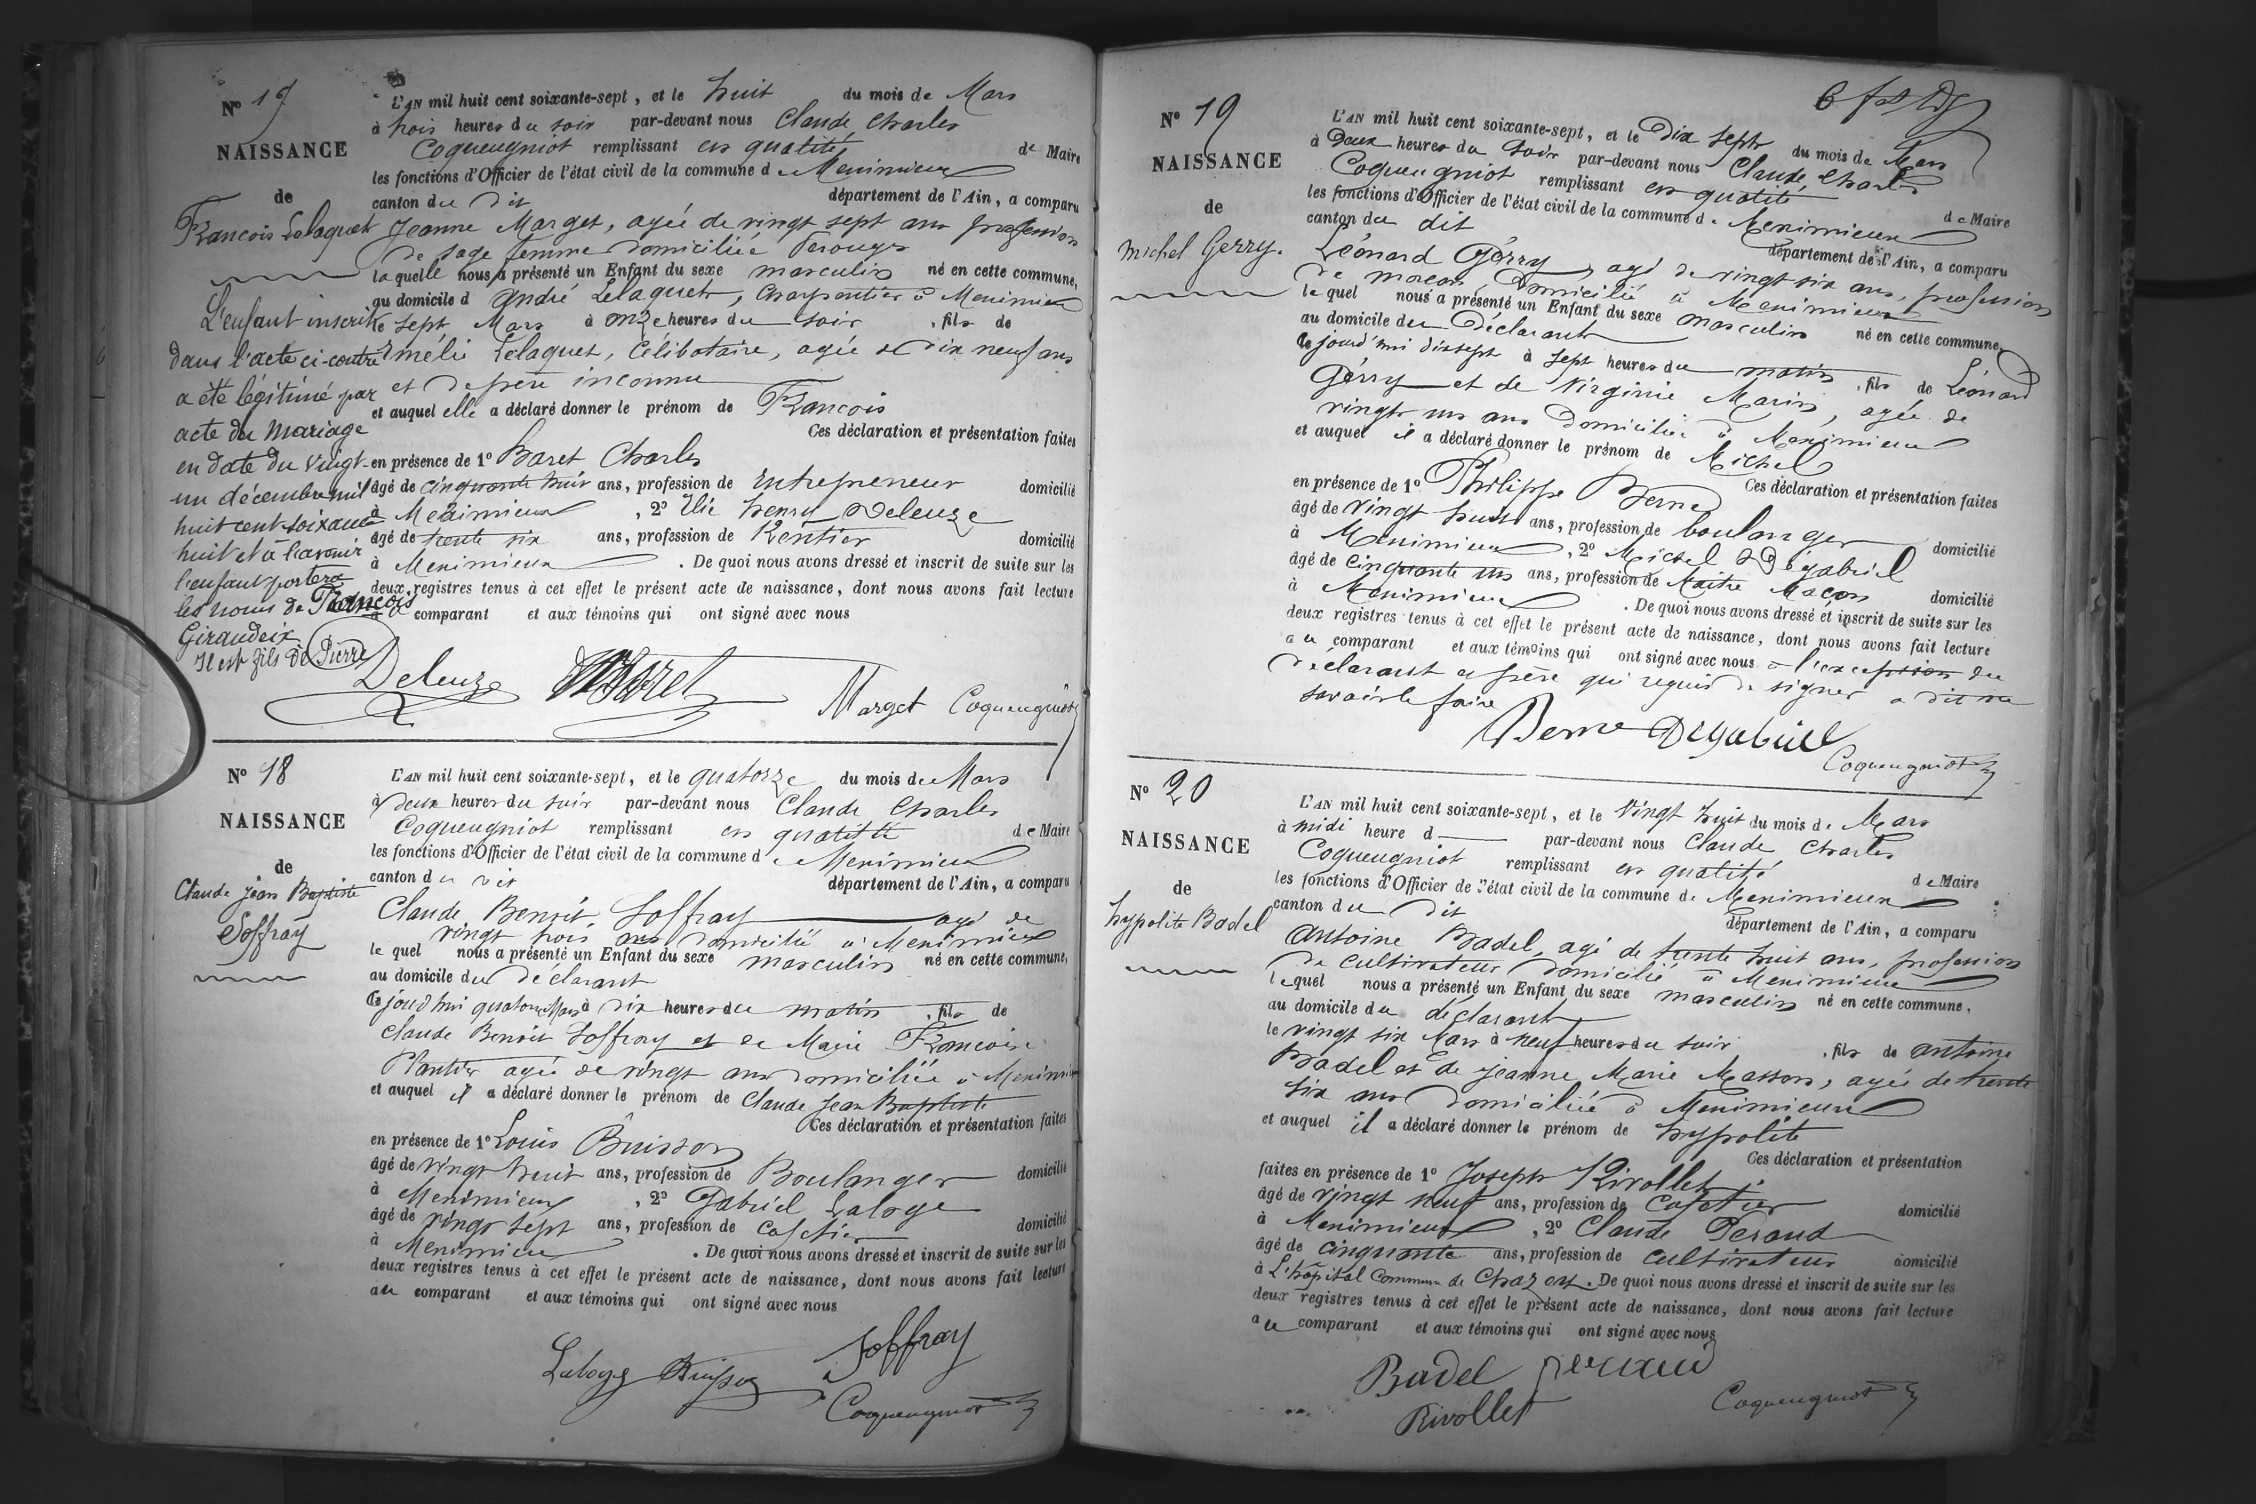 Nº 17
NAISSANCE
de
François Lelaquet
L'enfant inscrit
dans l'acte ci-contre
a été légitimé par
acte du Mariage
en date du vingt-
un décembre mil
huit cent soixante
huit et à l'avenir
l'enfant portera
les noms de François
Giraudeix
Il est fils de Pierre
L'AN mil huit cent soixante-sept, et le huit du mois de Mars
à trois heures du soir par-devant nous Claude Charles
Coqueugniot remplissant en qualité de Maire
les fonctions d'Officier de l'état civil de la commune de Meximieux
canton du dit département de l'Ain, a comparu
Jeanne Marget, agée de vingt sept ans profession
de sage femme domiciliée Perouges
laquelle nous a présenté un Enfant du sexe masculin né en cette commune,
au domicile d André Lelaquet, Charpentier à Meximieux
le sept Mars à onze heures du soir, fils de
Emélie Lelaquet, Célibataire, agée de dix neuf ans
et de père inconnu
et auquel elle a déclaré donner le prénom de François
Ces déclaration et présentation faites
en présence de 1º Baret Charles
âgé de cinquante huit ans, profession de Entrepreneur domicilié
à Meximieux, 2º Elie henry Deleuze
âgé de trente six ans, profession de Rentier domicilié
à Meximieux. De quoi nous avons dressé et inscrit de suite sur les
deux registres tenus à cet effet le présent acte de naissance, dont nous avons fait lecture
comparant et aux témoins qui ont signé avec nous
Deleuze Baret Marget Coqueugniot
Nº 18
NAISSANCE
de
Claude Jean Baptiste
Soffray
L'AN mil huit cent soixante-sept, et le quatorze du mois de Mars
à deux heures du soir par-devant nous Claude Charles
Coqueugniot remplissant en qualité de Maire
les fonctions d'Officier de l'état civil de la commune de Meximieux
canton du dit département de l'Ain, a comparu
Claude Benoit Soffray agé de
vingt trois ans domicilié à Meximieux
lequel nous a présenté un Enfant du sexe masculin né en cette commune,
au domicile du déclarant
Ce jourd'hui quatorze Mars à dix heures du matin, fils de
Claude Benoit Soffray et de Marie Françoise
Plantier agée de vingt ans domiciliée à Meximieux
et auquel il a déclaré donner le prénom de Claude Jean Baptiste
Ces déclaration et présentation faites
en présence de 1º Louis Buisson
âgé de vingt huit ans, profession de Boulanger domicilié
à Meximieux, 2º Gabriel Laloge
âgé de vingt sept ans, profession de cafetier domicilié
à Meximieux. De quoi nous avons dressé et inscrit de suite sur les
deux registres tenus à cet effet le présent acte de naissance, dont nous avons fait lecture
au comparant et aux témoins qui ont signé avec nous
Laloge Buisson Soffray
Coqueugniot
Nº 19
NAISSANCE
de
Michel Gerry.
L'AN mil huit cent soixante-sept, et le Dix sept du mois de Mars
à Deux heures du Soir par-devant nous Claude Charles
Coqueugniot remplissant en qualité de Maire
les fonctions d'Officier de l'état civil de la commune de Meximieux
canton du dit département de l'Ain, a comparu
Léonard Gérry, agé de vingt six ans, profession
de maçon, domicilié à Meximieux
lequel nous a présenté un Enfant du sexe masculin né en cette commune,
au domicile du Déclarant
Ce jourd'hui dix sept à sept heures du matin, fils de Léonard
Gérry et de Virginie Marin, agée de
vingt un ans domiciliée à Meximieux
et auquel il a déclaré donner le prénom de Michel
Ces déclaration et présentation faites
en présence de 1º Philippe Berne
âgé de vingt huit ans, profession de boulanger domicilié
à Meximieux, 2º Michel Dégabriel
âgé de cinquante un ans, profession de Maitre Maçon domicilié
à Meximieux. De quoi nous avons dressé et inscrit de suite sur les
deux registres tenus à cet effet le présent acte de naissance, dont nous avons fait lecture
au comparant et aux témoins qui ont signé avec nous à l'exception du
déclarant et père qui requis de signer a dit ne
savoir le faire
Berne Degabriel
Coqueugniot
Nº 20
NAISSANCE
de
hypolite Badel
L'AN mil huit cent soixante-sept, et le vingt huit du mois de Mars
à midi heure d par-devant nous Claude Charles
Coqueugniot remplissant en qualité de Maire
les fonctions d'Officier de l'état civil de la commune de Meximieux
canton du dit département de l'Ain, a comparu
Antoine Badel, agé de trente huit ans, profession
de cultivateur domicilié à Meximieux
lequel nous a présenté un Enfant du sexe masculin né en cette commune,
au domicile du déclarant
le vingt six Mars à neuf heures du soir, fils de antoine
Badel et de jeanne Marie Masson, agée de trente
six ans domiciliée à Meximieux
et auquel il a déclaré donner le prénom de hypolite
Ces déclaration et présentation
faites en présence de 1º Joseph Rivollet
âgé de vingt neuf ans, profession de Cafetier domicilié
à Meximieux, 2º Claude Peraud
âgé de cinquante ans, profession de cultivateur domicilié
à L'hôpital Commune de Chazey. De quoi nous avons dressé et inscrit de suite sur les
deux registres tenus à cet effet le présent acte de naissance, dont nous avons fait lecture
au comparant et aux témoins qui ont signé avec nous
Badel Peraud
Rivollet Coqueugniot